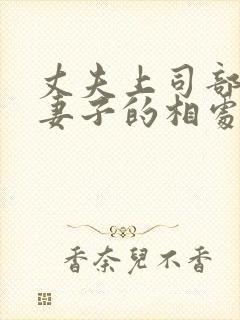 丈夫上司部
妻子的相處
香奈兒不香